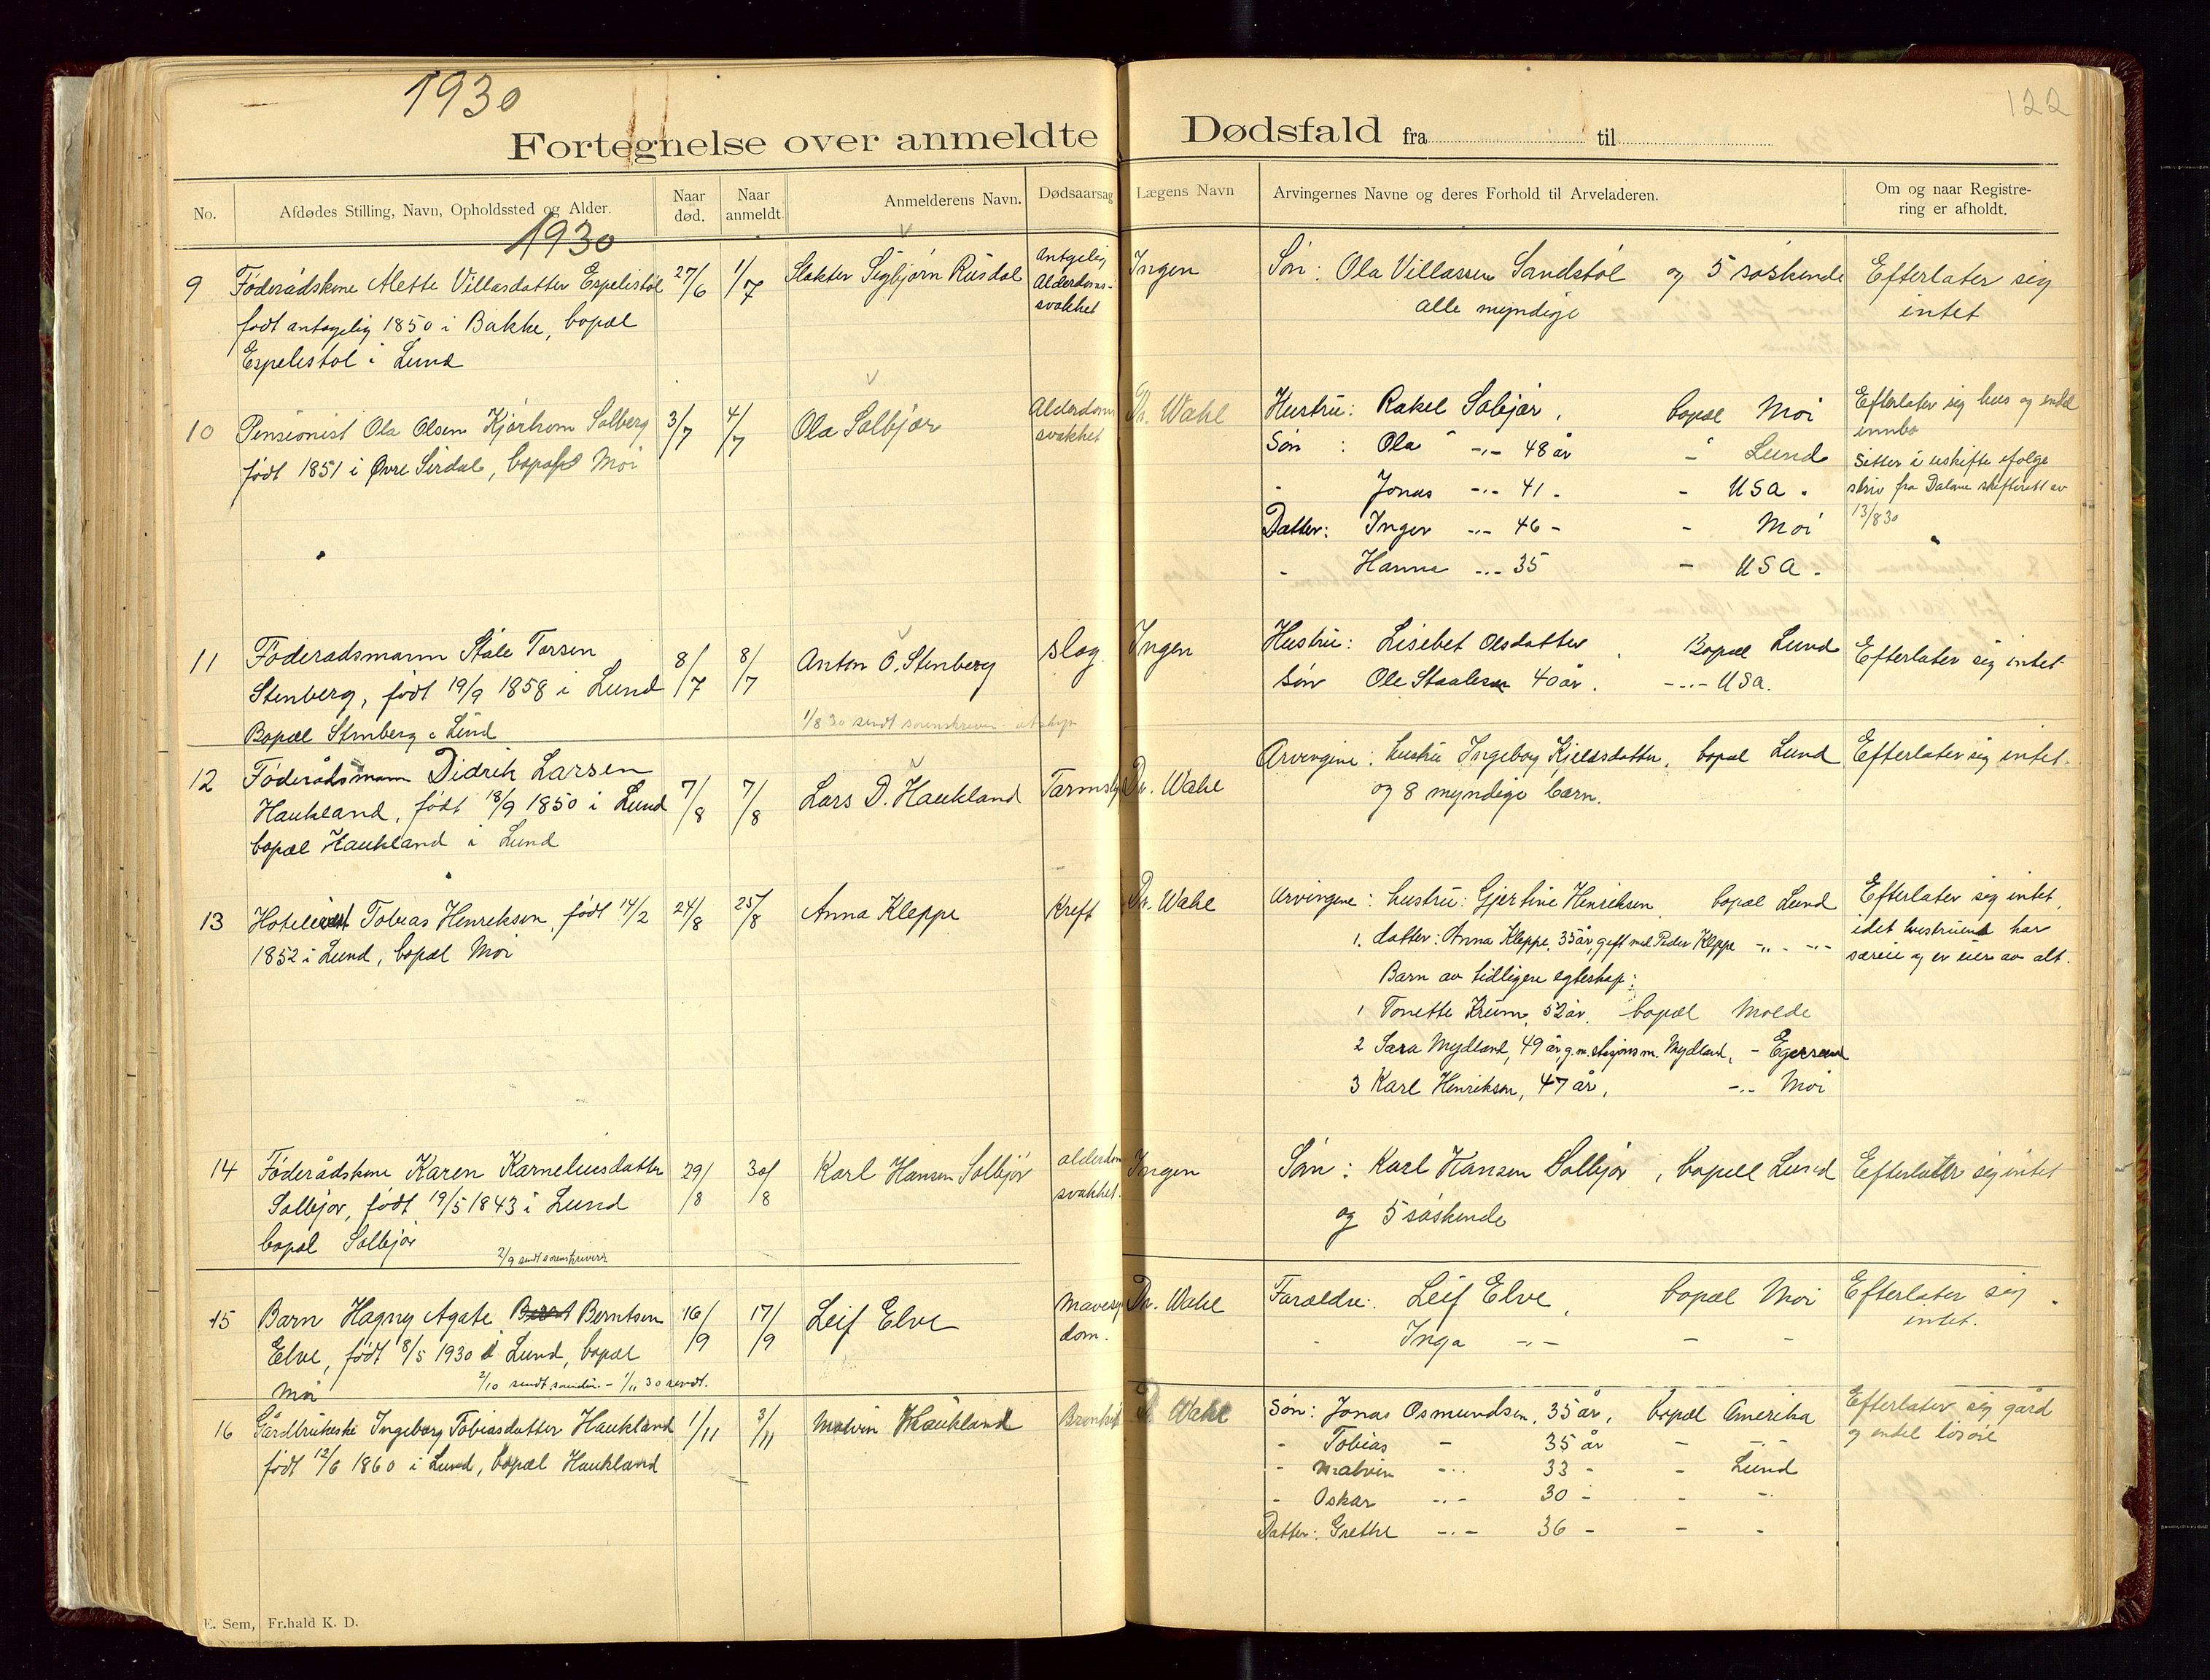 1930
122
Fortegnelse over anmeldte Dødsfald fra til
No.
Afdødes Stilling, Navn, Opholdssted og Alder.
Naar død.
Naar anmeldt.
Anmelderens Navn.
Dødsaarsag
Lægens Navn
Arvingernes Navne og deres Forhold til Arveladeren.
Om og naar Registre-
ring er afholdt.
1930
9 Føderådskone Alette Villasdatter Espelistøl 27/6 1/7 Slakter Sigbjørn Rusdal Antagelig Ingen Søn: Ola Villassen Sandstøl og 5 søskende Efterlater sig
født antagelig 1850 i Bakke, bopæl Alderdoms- alle myndige intet
Espelistøl i Lund svakhet
10 Pensionist Ola Olsen Kjørhom Solberg 3/7 4/7 Ola Solbjør Alderdoms Dr. Wahl Hustru: Rakel Solbjør, bopæl Moi Efterlater sig hus og endel
født 1851 i Øvre Sirdal, bopæl Moi svakhet Søn : Ola -"- 48 år - Lund innbo
- Jonas -"- 41 - - USA. Sitter i uskifte ifølge
Datter: Inger -"- 46 - - Moi skriv fra Dalane skifterett av
- Hanna -"- 35 - USA. 13/8 30
11 Føderadsmann Ståle Torsen 8/7 8/7 Anton O. Stenberg slag Ingen Hustru: Lisebet Olsdatter. Bopæl Lund Efterlater sig intet
Stenberg, født 19/9 1858 i Lund Søn Ole Staalesen 40 år. -"- USA.
Bopæl Stenberg i Lund 1/8 30 sendt sorenskriver
12 Føderådsmann Didrik Larsen 7/8 7/8 Lars D. Haukland Dr. Wahl Arvingene: hustru Ingeborg Kjelasdatter, bopæl Lund Efterlater sig intet.
Haukland, født 18/9 1850 i Lund og 8 myndige barn.
bopæl Haukland i Lund
13 Tobias Henriksen, født 14/2 24/8 25/8 Anna Kleppe Kreft Dr. Wahl Arvingene: hustru: Gjertine Henriksen, bopæl Lund Efterlater sig intet,
1852 i Lund, bopæl Moi 1. datter: Anna Kleppe, 35 år, gift med Peder Kleppe -"- -"- idet hustruen har
Barn av tidligere egteskap: særeie og er eier av alt.
1 Tonette Krum, 52 år. bopæl Molde
2 Sara Mydland, 49 år, g.m. stasjonsm. Mydland, - Egersund
3 Karl Henriksen, 47 år, -"- Moi
14 Føderådskone Karen Karneliusdatter 29/8 30/8 Karl Hansen Solbjør alderdoms Ingen Søn: Karl Hansen Solbjør, bopell Lund Efterlater sig intet
Solbjør, født 19/5 1843 i Lund svakhet. og 5 søskende
bopæl Solbjør
2/9 sendt sorenskriver
15 Barn Hagny Agate Berntsen 16/9 17/9 Leif Elve Mavesyg Dr. Wahl Foreldre: Leif Elve, bopæl Moi Efterlater sig
Elve, født 8/5 1930 i Lund, bopæl dom. - Inga -"- - - intet.
Moi 2/10 sendt - 1/11 30 sendt.
16 Gårdbrukerske Ingeborg Tobiasdatter Haukland 1/11 3/11 Malvin Haukland Dr. Wahl Søn: Jonas Osmundsen, 35 år, bopæl Amerika Efterlater sig gård
født 12/6 1860 i Lund, bopæl Haukland - Tobias - 35 år - -"- og endel løsøre
- Malvin -"- 33 - - Lund
- Oskar -"- 30 - - -
Datter: Grethe -"- 36 - - -
E. Sem, Fr.hald K. D.